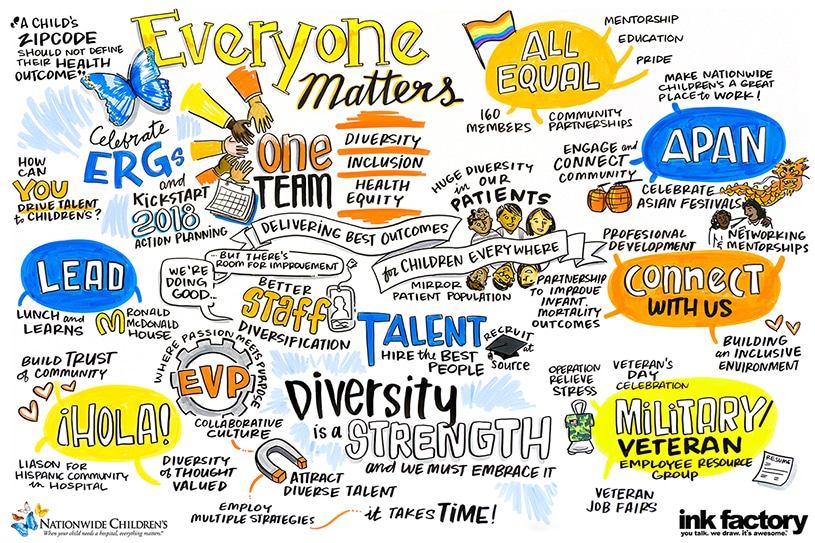 "A CHILD'S
ZIPCODE
SHOULD NOT DEFINE
THEIR HEALTH
OUTCOME"
Everyone
Matters
ALL
EQUAL
MENTORSHIP
EDUCATION
PRIDE
160
MEMBERS
COMMUNITY
PARTNERSHIPS
MAKE NATIONWIDE
CHILDREN'S A GREAT
PLACE to WORK!
APAN
ENGAGE and
CONNECT
COMMUNITY
CELEBRATE
ASIAN FESTIVALS
NETWORKING
MENTORSHIPS
PROFESIONAL
DEVELOPMENT
Celebrate
ERGs
and
KICKSTART
2018
ACTION PLANNING
HOW
CAN
YOU
DRIVE TALENT
to CHILDREN'S?
ONE
TEAM
DIVERSITY
INCLUSION
HEALTH
EQUITY
HUGE DIVERSITY
in OUR
PATIENTS
DELIVERING BEST OUTCOMES
for CHILDREN EVERYWHERE
MIRROR
PATIENT POPULATION
PARTNERSHIP
TO IMPROVE
INFANT
MORTALITY
OUTCOMES
CONNECT
WITH US
BUILDING
an INCLUSIVE
ENVIRONMENT
LEAD
LUNCH and
LEARNS
RONALD
McDONALD
HOUSE
WE'RE
DOING
GOOD..
...BUT THERE'S
ROOM FOR IMPROVEMENT
BETTER
Staff
DIVERSIFICATION
TALENT
HIRE the BEST
PEOPLE
RECRUIT
at
SOURCE
BUILD TRUST
of COMMUNITY
¡HOLA!
LIASON FOR
HISPANIC COMMUNITY
in HOSPITAL
WHERE PASSION MEETS PURPOSE
EVP
COLLABORATIVE
CULTURE
DIVERSITY
of THOUGHT
VALUED
ATTRACT
DIVERSE TALENT
EMPLOY
MULTIPLE STRATEGIES
it TAKES TIME!
Diversity
is a STRENGTH
and WE MUST EMBRACE IT
OPERATION
RELIEVE
STRESS
VETERAN'S
DAY
CELEBRATION
MILITARY/
VETERAN
EMPLOYEE RESOURCE
GROUP
RESUME
VETERAN
JOB FAIRS
NATIONWIDE CHILDREN'S
When your child needs a hospital, everything matters.™
ink factory
you talk. we draw. it's awesome.